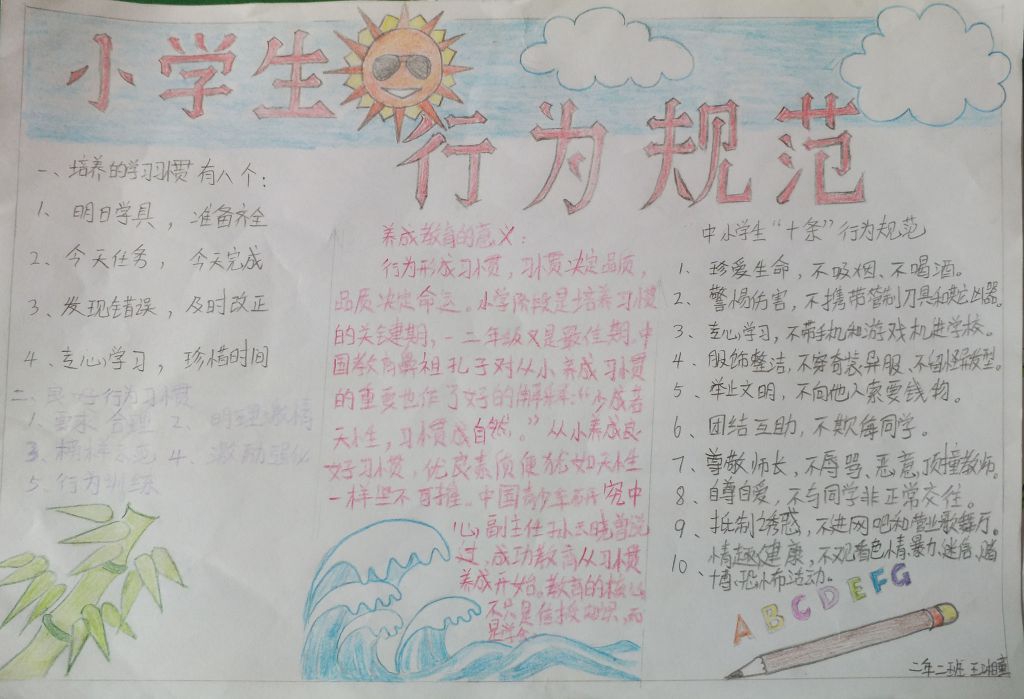 小学生
行为规范
一、培养的学习习惯有八个：
1、明日学具，准备齐全
2、今天任务，今天完成
3、发现错误，及时改正
4、专心学习，珍惜时间
二、良好行为习惯
1、要求合理 2、明理激情
3、榜样示范 4、激励强化
5、行为训练
养成教育的意义：
行为形成习惯，习惯决定品质，
品质决定命运。小学阶段是培养习惯
的关键期，一二年级又是最佳期。中
国教育鼻祖孔子对从小养成习惯
的重要也作了好的解释：“少成若
天生，习惯成自然。”从小养成良
好习惯，优良素质便犹如天性
一样坚不可摧。中国青少年研究中
心副主任孙云晓曾说
过，成功教育从习惯
养成开始。教育的核心
不只是传授知识，而
是学
中小学生“十条”行为规范
1、珍爱生命，不吸烟、不喝酒。
2、警惕伤害，不携带管制刀具和凶器。
3、专心学习，不带手机和游戏机进学校。
4、服饰整洁，不穿奇装异服、不留怪异发型。
5、举止文明，不向他人索要钱物。
6、团结互助，不欺侮同学。
7、尊敬师长，不辱骂、恶意顶撞教师。
8、自尊自爱，不与同学非正常交往。
9、抵制诱惑，不进网吧和营业歌舞厅。
10、情趣健康，不观看色情、暴力、迷信、赌
博、恐怖活动。
ABCDEFG
二年二班 王